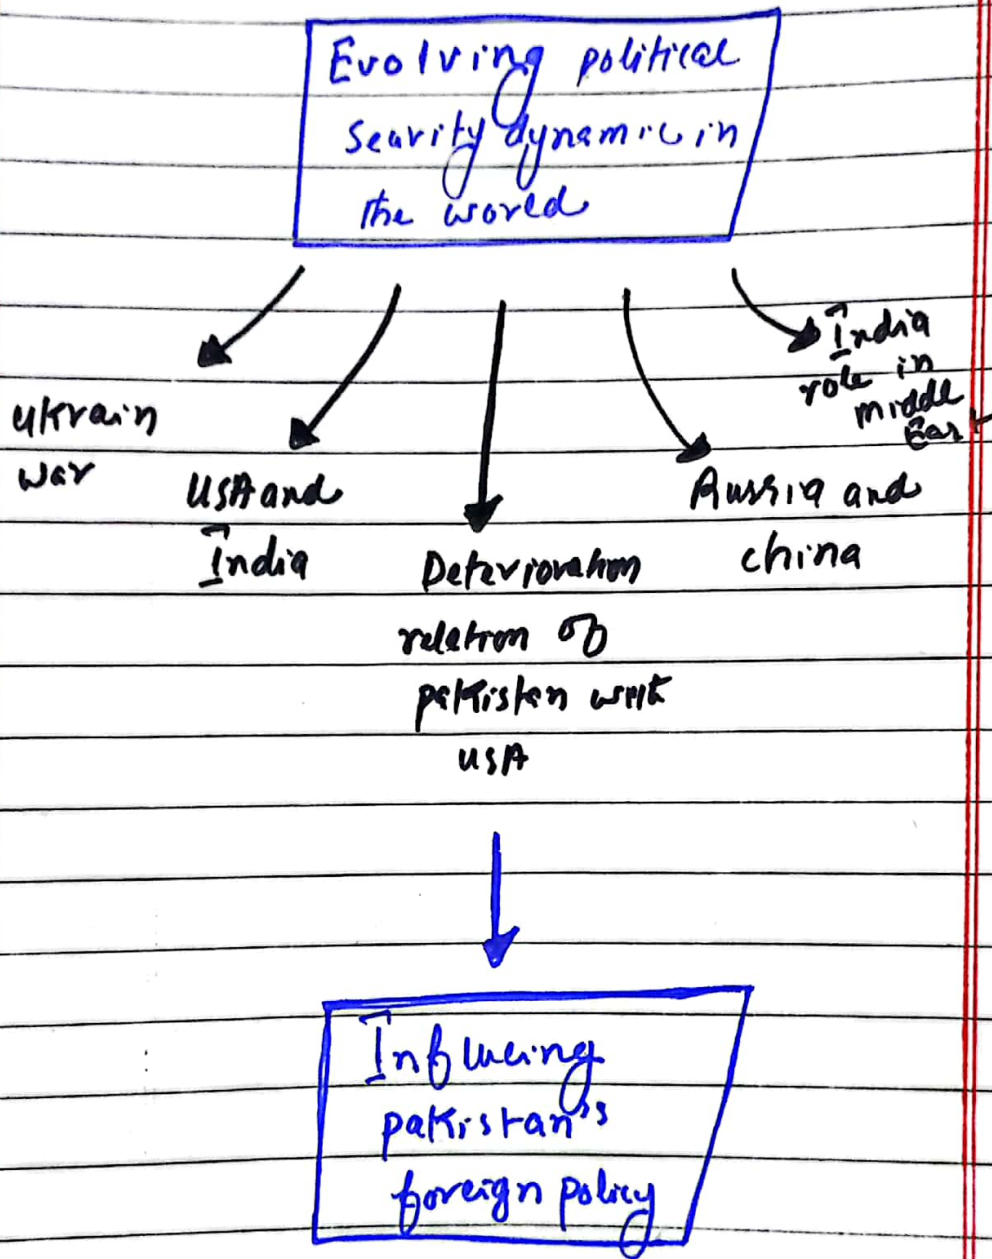 Evolving political
Seurity dynamic in
the world
Ukrain
war
USA and
India
Deterioration
relation of
pakistan with
USA
Russia and
china
India
role in
middle
East
Influcing
pakistan's
foreign policy